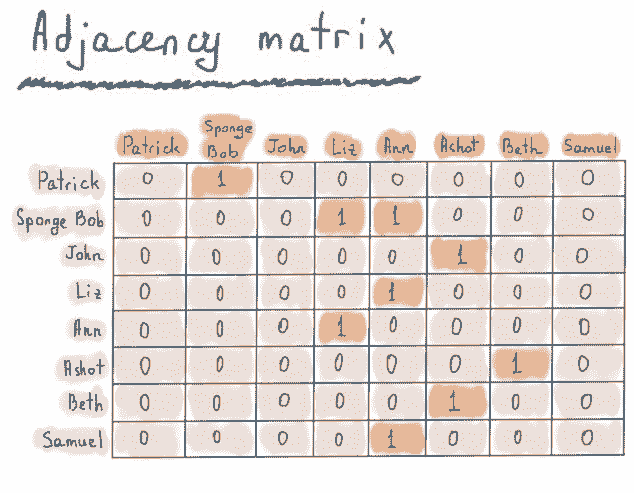 Adjacency matrix
Patrick Sponge Bob John Liz Ann Ashot Beth Samuel
Patrick 0 1 0 0 0 0 0 0
Sponge Bob 0 0 0 1 1 0 0 0
John 0 0 0 0 0 1 0 0
Liz 0 0 0 0 1 0 0 0
Ann 0 0 0 1 0 0 0 0
Ashot 0 0 0 0 0 0 1 0
Beth 0 0 0 0 0 1 0 0
Samuel 0 0 0 0 1 0 0 0